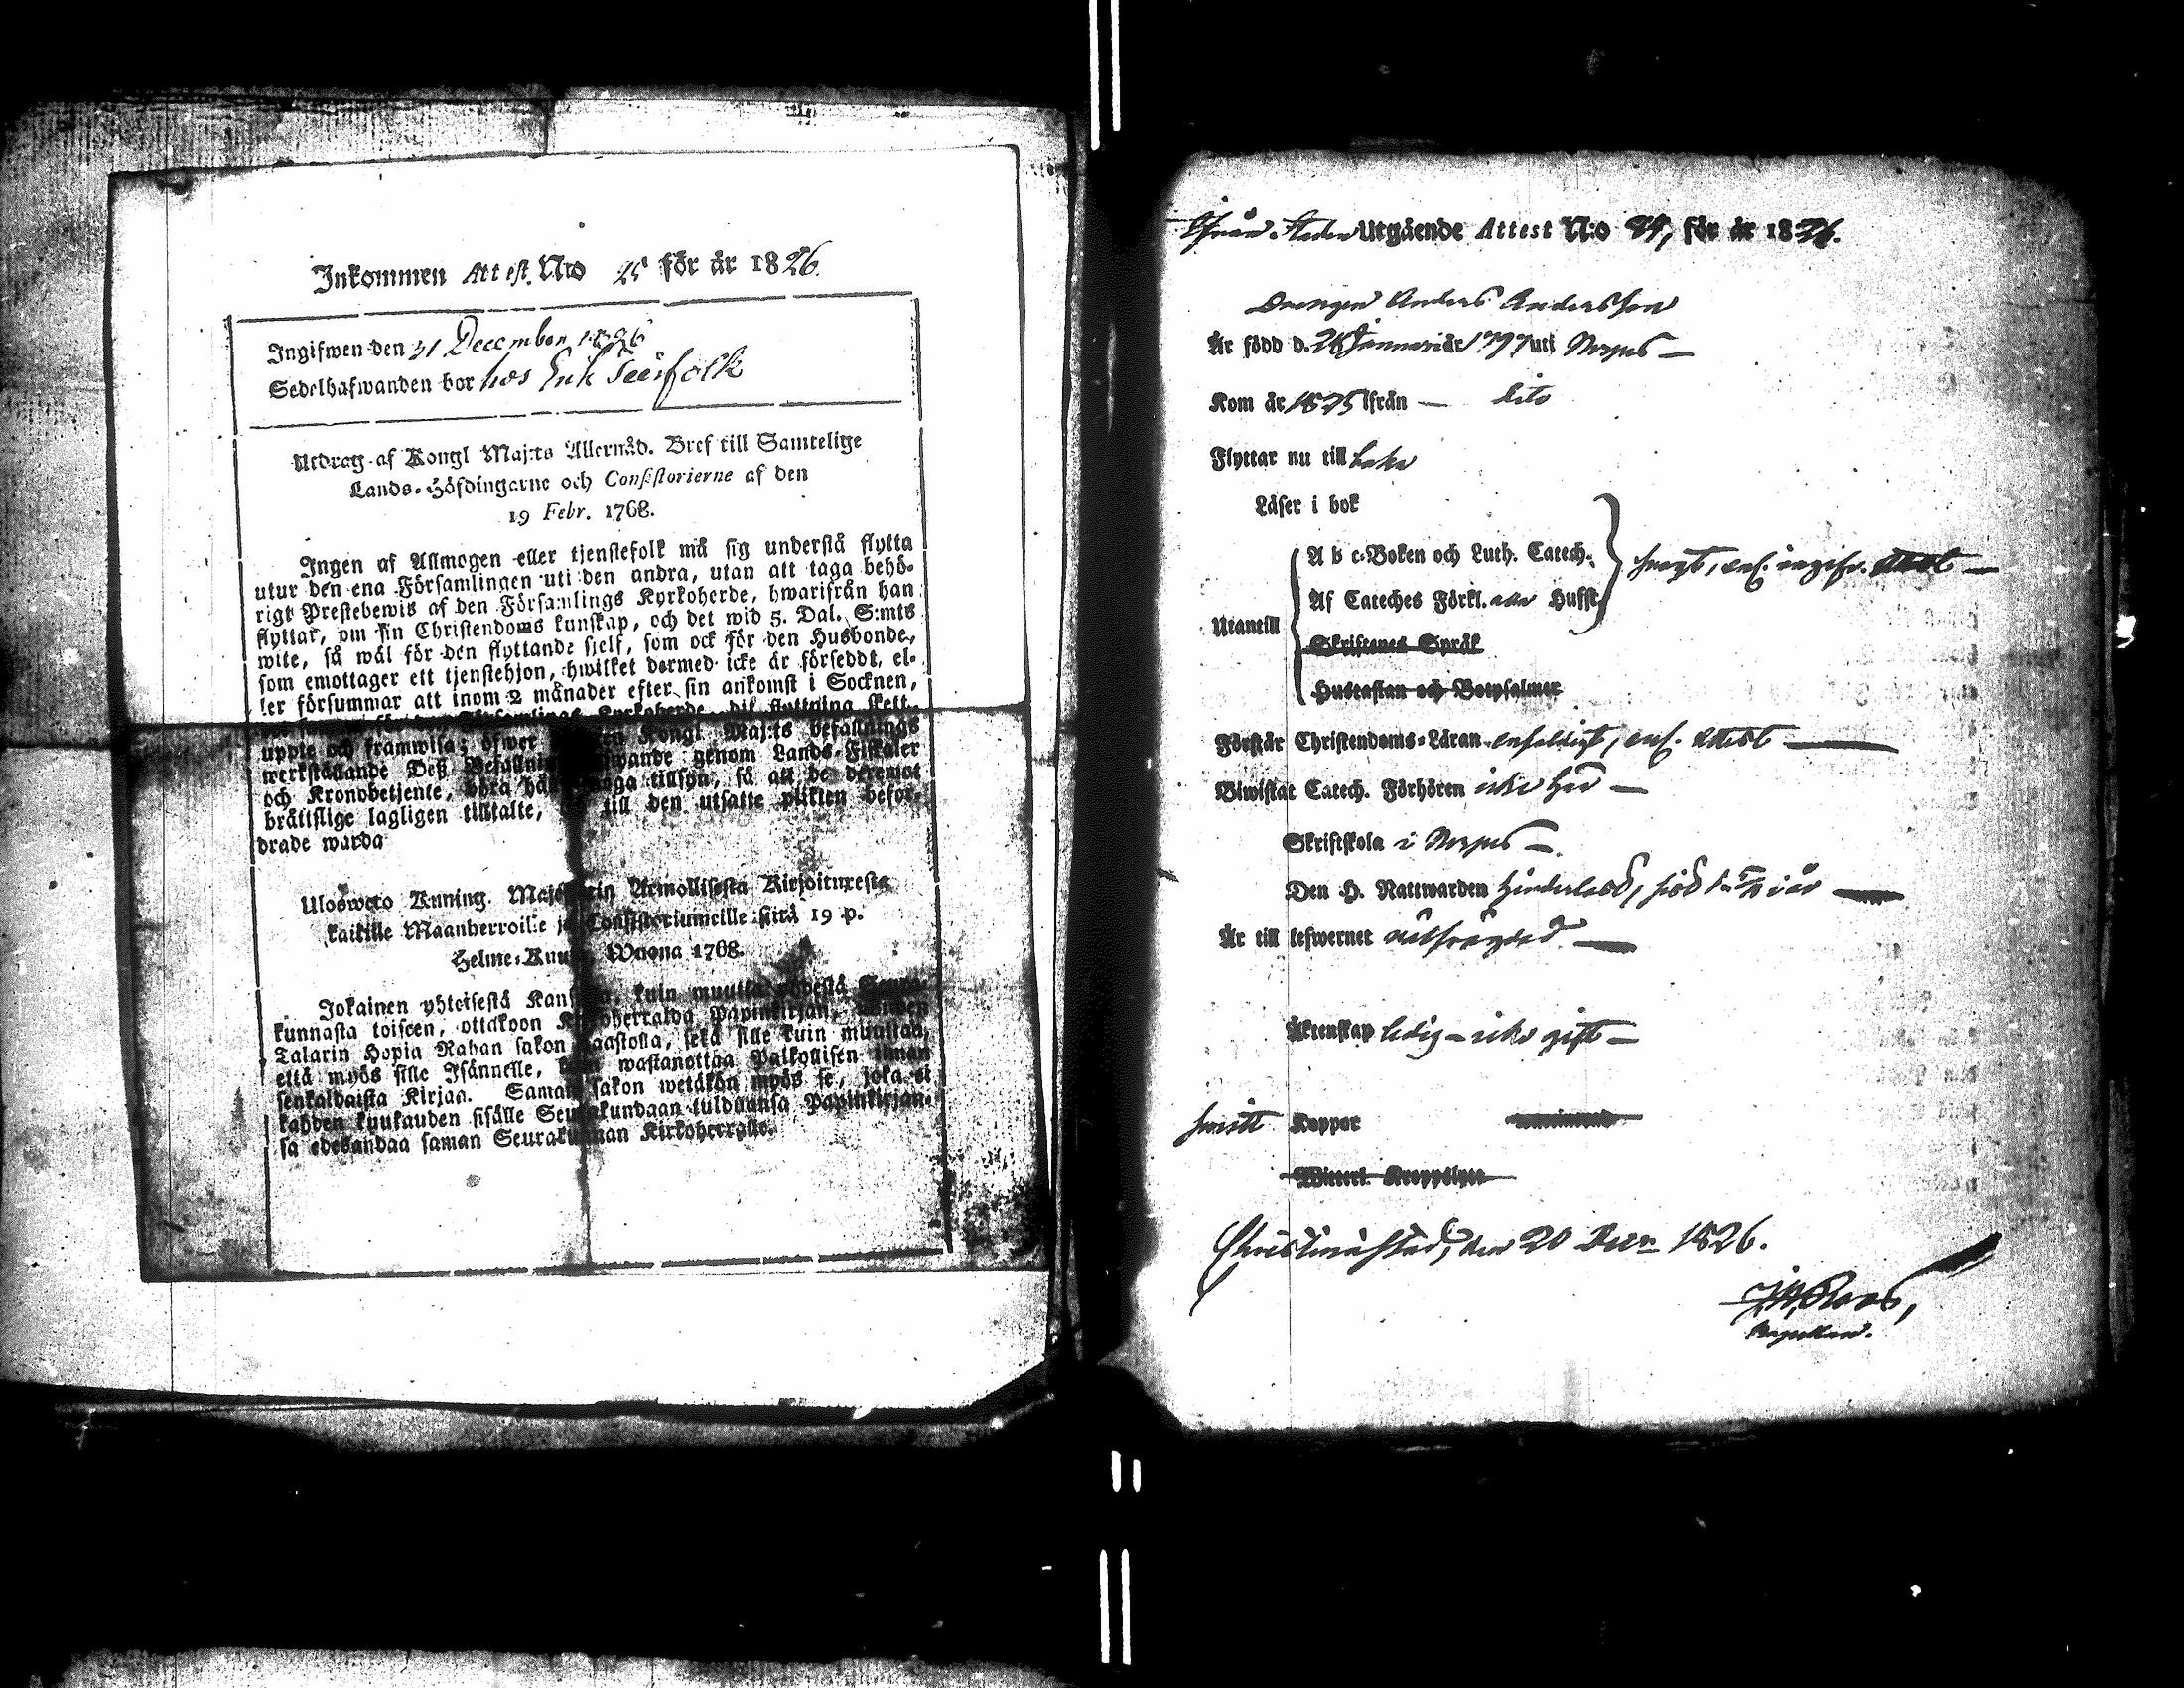 Inkommen Attest. Nro 25 för år 1826
Ingifwen den 31 December 1826
Sedelhafwanden bor hos Erik
Utdrag af Kongl Maj:ts Allernåd. Bref till Samtelige
Lands-Höfdingarne och Consistorierne af den
19 Febr. 1768.
Ingen af Allmogen eller tjenstefolk må sig understå flytta
utur den ena Församlingen uti den andra, utan att taga behö-
rigt Prestebewis af den Församlings Kyrkoherde, hwarifrån han
flyttar, om sin Christendoms kunskap, och det wid 5. Dal. S:mts
wite, så wäl för den flyttande sjelf, som ock för den Husbonde,
som emottager ett tjenstehjon, hwilket dermed icke är försedt, el-
ler försummar att inom 2 månader efter sin ankomst i Socknen,
Kyrkoherde, dit flyttning skett,
uppte och framwisa; öfwer Kongl Maj:ts befallnings
werkställande Deß genom Lands-Fiskaler
och Kronobetjente, böra noga tillsyn, så att de deremot
brättslige lagligen tilltalte, till den utsatte plikten befor-
drade warda
Ulosweto Kuning. Armollisesta Kirjoituxesta
kaikille Maanherroille ja Consistoriumeille siitä 19 p.
Helme-Kuusa Wuona 1768.
Jokainen yhteisestä kuin muutta yhdestä Seura-
kunnasta toiseen, ottakoon Papinkirjan, Wiiden
Talarin Hopia Rahan sakon sekä sille kuin muuttaa,
että myös sille Isännelle, wastanottaa Palkollisen ilman
senkaldaista Kirjaa. Saman sakon wetäkön myös se, joka ei
kahden kuukauden sisälle Seurakundaan tulduansa Papinkirjan-
sa edesandaa saman Seurakunnan Kirkoherralle.
Från Utgående Attest N:o 84, för år 1826.
Drengen Anders Andersson
Är född d. 26 Januari år 1797 uti Nerpes —
Kom år 1825 ifrån — dito
Flyttar nu till baka
Läser i bok
Utantill
A b c-Boken och Luth. Catech.
svagt, enl. ingifv. Attest —
Af Cateches Förkl. Husst.
Skriftenes Språk
Hustaflan och Botpsalmer
Förstår Christendoms-Läran enfaldigt, enl. Attest —
Biwistat Catech. Förhören icke här —
Skriftskola i Nerpes —
Den H. Nattwarden i år —
Är till lefwernet —
Äktenskap ledig — icke gift —
Koppor
Christinæstad, den 20 Decr 1826.